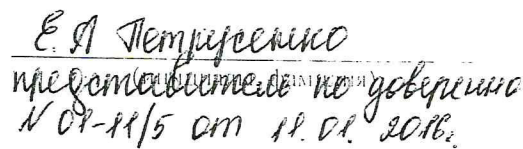 Е.А Петрусенко
представитель по доверенно
N 01-11/5 от 11.01.2016г